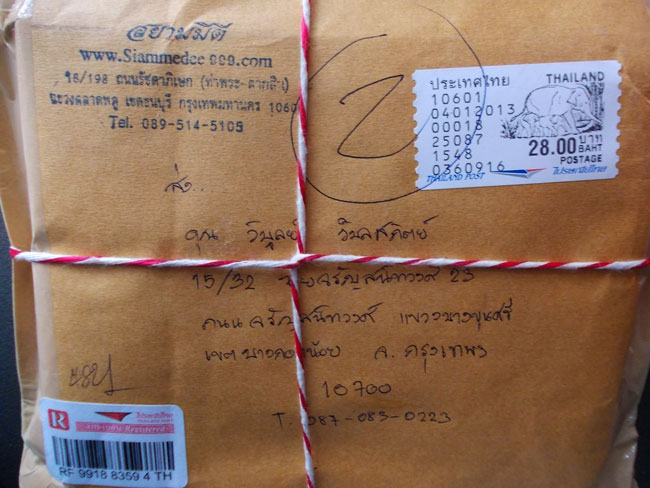 สยามมีดี
www.Siammedee999.com
18/198 ถนนรัชดาภิเษก (ท่าพระ-ตากสิน)
แขวงตลาดพลู เขตธนบุรี กรุงเทพมหานคร 1060
Tel. 089-514-5105
2
ประเทศไทย
10601
04012013
00018
25087
1548
0360916
THAILAND POST
THAILAND
28.00 บาท
BAHT
POSTAGE
ไปรษณีย์ไทย
ส่ง..
คุณ วิบูลย์
15/32 ซอยจรัญสนิทวงศ์ 23
ถนนจรัญสนิทวงศ์ แขวงบางขุนศรี
เขตบางกอกน้อย จ. กรุงเทพฯ
10700
T. 087-083-0223
R
ไปรษณีย์ไทย
THAILAND POST
ลงทะเบียน Registered
RF 9918 8359 4 TH